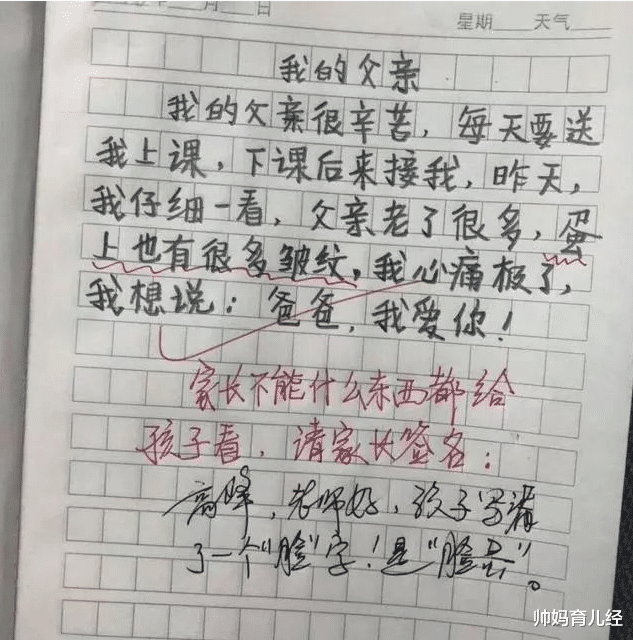 年 月 日
星期 天气
我的父亲
我的父亲很辛苦，每天要送
我上课，下课后来接我，昨天，
我仔细一看，父亲老了很多，蛋
上也有很多皱纹。我心痛极了，
我想说：爸爸，我爱你！
家长不能什么东西都给
孩子看，请家长签名：
高峰，老师好，孩子写漏
了一个“脸”字！是“脸蛋”。
帅妈育儿经